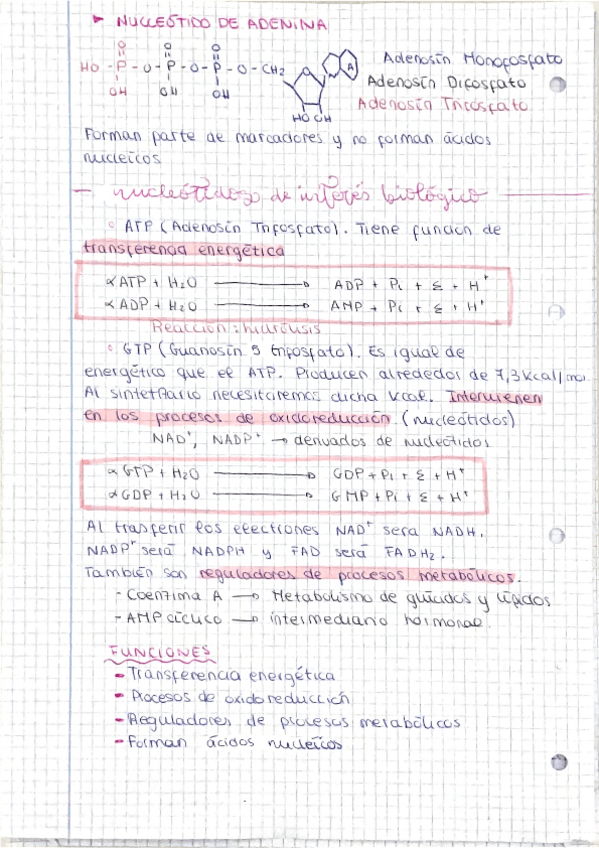 ▸ NUCLEÓTIDO DE ADENINA
O O O
HO - P - O - P - O - P - O - CH2 A
OH OH OH
HO OH
Adenosín Monofosfato
Adenosín Difosfato
Adenosín Trifosfato
Forman parte de marcadores y no forman ácidos
nucleicos
— nucleótidos de interés biológico —
◦ ATP (Adenosín Trifosfato). Tiene función de
transferencia energética
αATP + H2O → ADP + Pi + Ɛ + H+
αADP + H2O → AMP + Pi + Ɛ + H+
Reacción: hidrólisis
◦ GTP (Guanosín 5 trifosfato). Es igual de
energético que el ATP. Producen alrededor de 7,3 kcal/mol
Al sintetizarlo necesitaremos dicha kcal. Intervienen
en los procesos de oxidoreducción. (nucleótidos)
NAD+, NADP+ → derivados de nucleótidos
αGTP + H2O → GDP + Pi + Ɛ + H+
αGDP + H2O → GMP + Pi + Ɛ + H+
Al trasferir los electrones NAD+ será NADH,
NADP+ será NADPH y FAD será FADH2.
También son reguladores de procesos metabólicos.
- Coenzima A → Metabolismo de glúcidos y lípidos
- AMP cíclico → intermediario hormonal.
FUNCIONES
- Transferencia energética
- Procesos de oxidoreducción
- Reguladores de procesos metabólicos
- Forman ácidos nucleicos